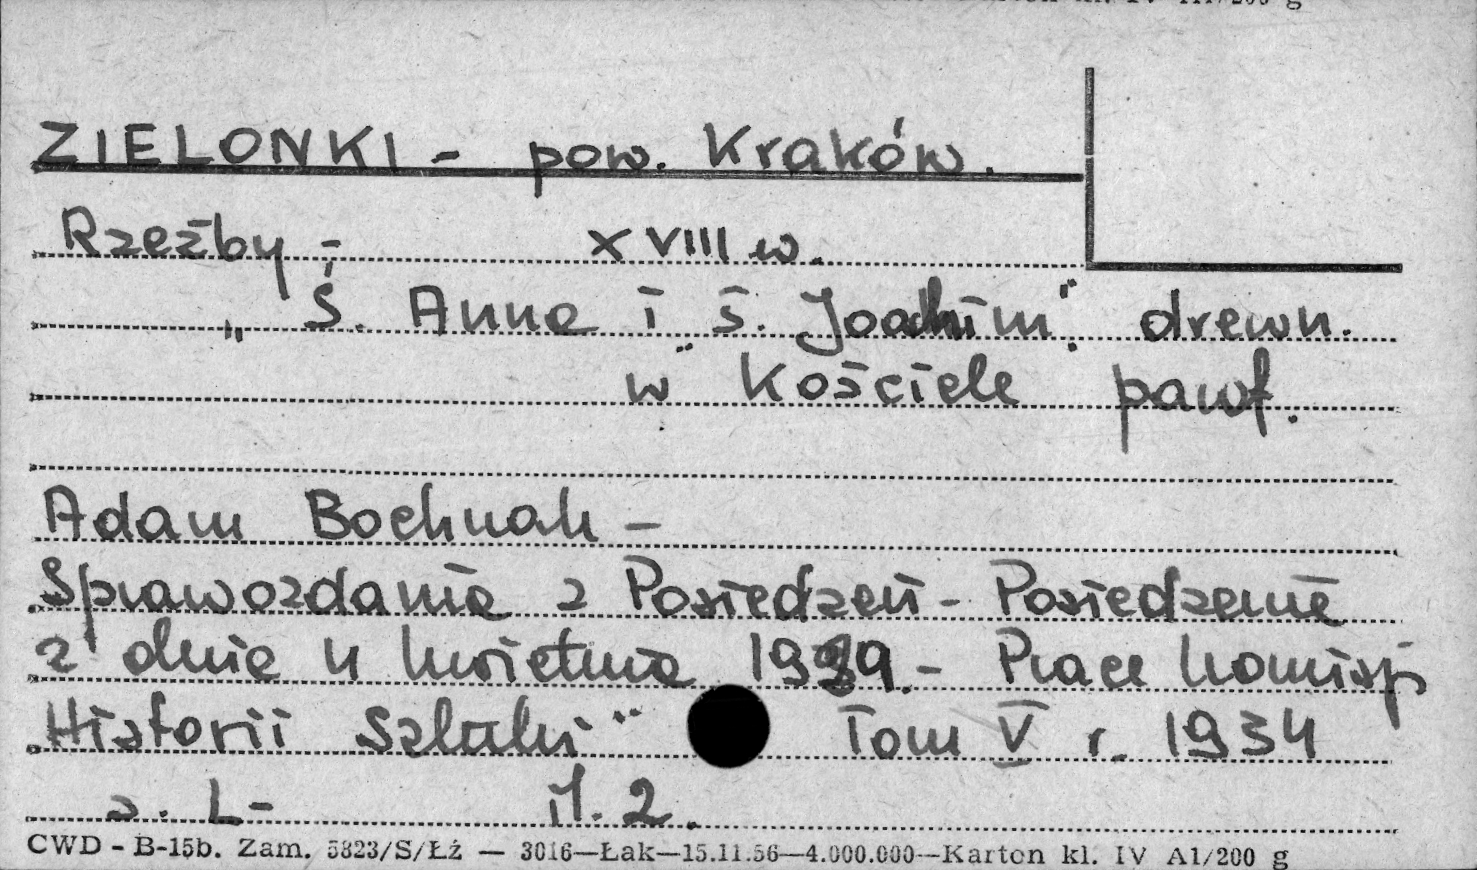 ZIELONKI - pow. Kraków.
Rzeźby - XVIII w.
„Ś. Anna i ś. Joachim". drewn.
w kościele paraf.
Adam Bochnak -
Sprawozdania z Posiedzeń - Posiedzenie
z dnia 4 kwietnia 1929. - Prace Komisji
Historii Sztuki" Tom V r. 1934
s. L- il. 2.
CWD - B-15b. Zam. 5823/S/Łż — 3016—Łak—15.11.56—4.000.000—Karton kl. IV A1/200 g